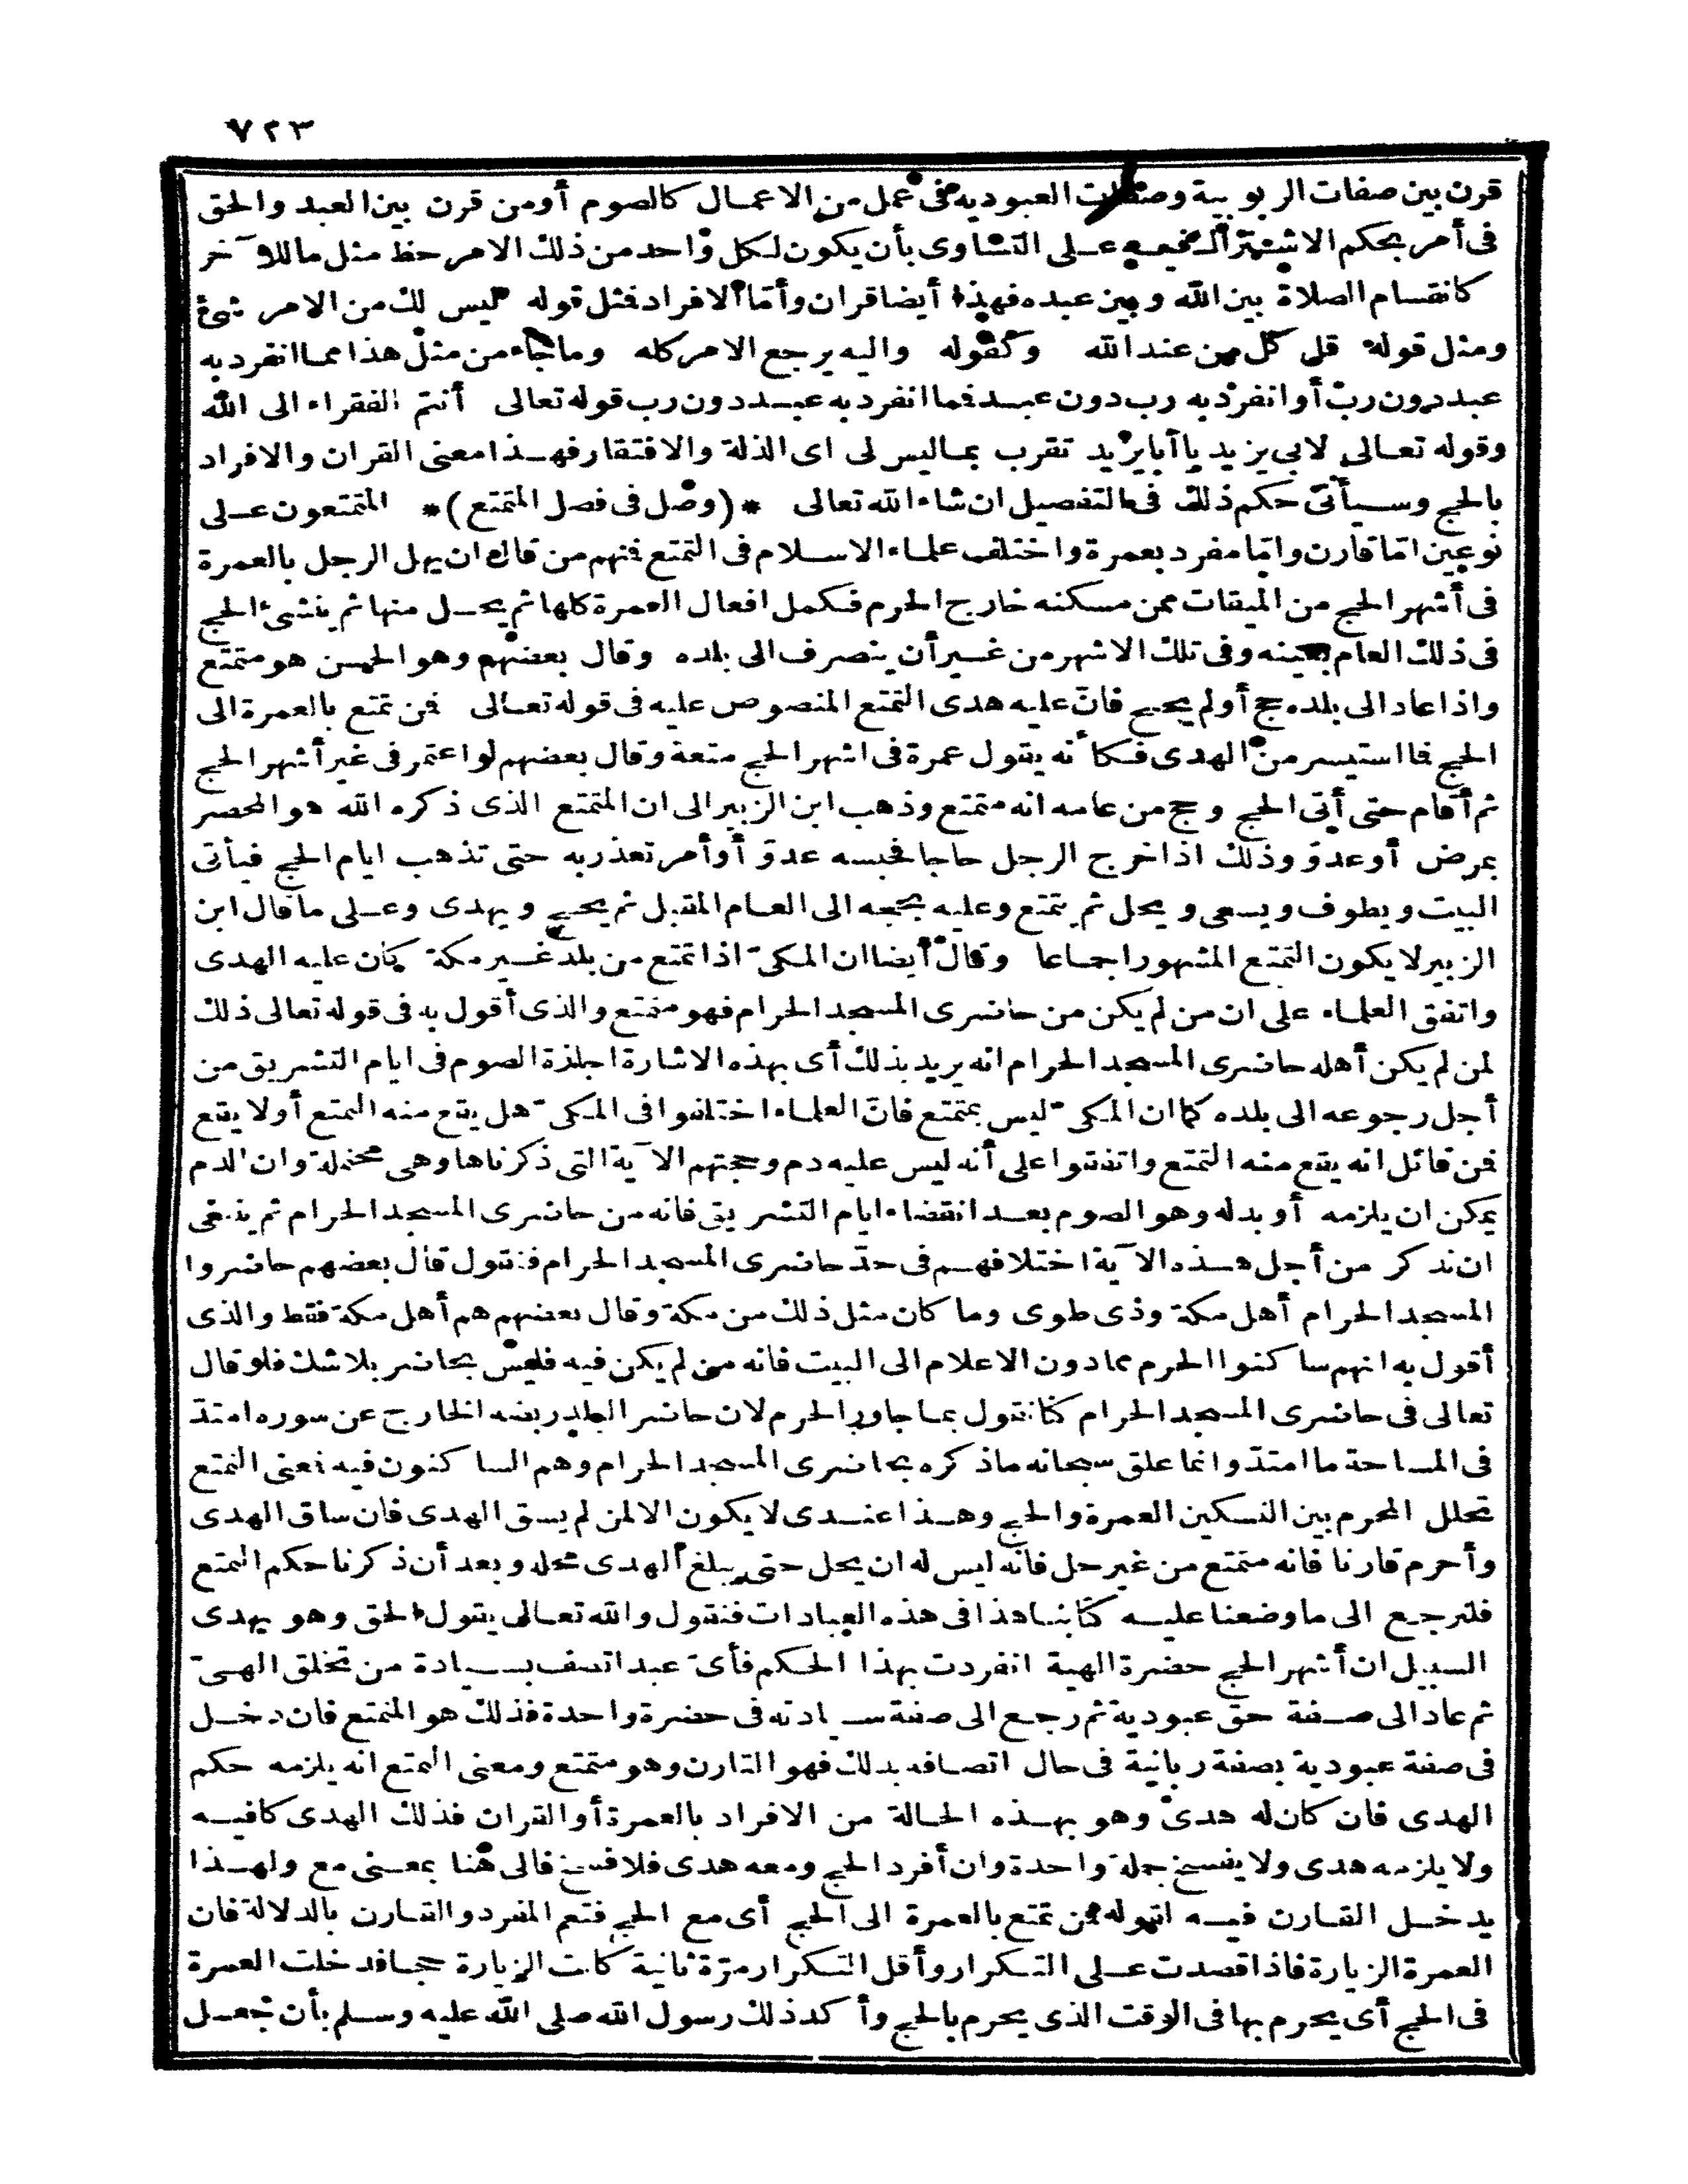 ٧٢٣
قرن بين صفات الربوبية وصفات العبودية فى عمل من الاعمال كالصوم أومن قرن بين العبد والحق
فى أمر بحكم الاشتراك فيه على التساوى بأن يكون لكل واحد من ذلك الامر حظ مثل ماللآخر
كانقسام الصلاة بين الله وبين عبده فهذا أيضا قران وأما الافراد فمثل قوله ليس لك من الامر شئ
ومثل قوله قل كل من عند الله وكقوله واليه يرجع الامر كله وماجاء من مثل هذا مما انفرد به
عبد دون رب أوانفرد به رب دون عبد فما انفرد به عبد دون رب قوله تعالى أنتم الفقراء الى الله
وقوله تعالى لابى يزيد يا أبا يزيد تقرب بما ليس لى اى الذلة والافتقار فهذا معنى القران والافراد
بالحج وسيأتى حكم ذلك فى التفصيل ان شاء الله تعالى *(وصل فى فصل المتمتع)* المتمتعون على
نوعين امّا قارن وامّا مفرد بعمرة واختلف علماء الاسلام فى التمتع فمنهم من قال ان يهل الرجل بالعمرة
فى أشهر الحج من الميقات ممن مسكنه خارج الحرم فكمل افعال العمرة كلها ثم يحل منها ثم ينشئ الحج
فى ذلك العام بعينه وفى تلك الاشهر من غير أن ينصرف الى بلده وقال بعضهم وهو الحسن هو متمتع
واذا عاد الى بلده حج أولم يحج فانّ عليه هدى التمتع المنصوص عليه فى قوله تعالى فمن تمتع بالعمرة الى
الحج فما استيسر من الهدى فكأنه يقول عمرة فى اشهر الحج متعة وقال بعضهم لواعتمر فى غير أشهر الحج
ثم أقام حتى أتى الحج وحج من عامه انه متمتع وذهب ابن الزبير الى ان المتمتع الذى ذكره الله هو المحصر
بمرض أوعدوّ وذلك اذا خرج الرجل حاجا فحبسه عدوّ أوأمر تعذر به حتى تذهب ايام الحج فيأتى
البيت ويطوف ويسعى ويحل ثم يتمتع وعليه بحجه الى العام المقبل ثم يحج ويهدى وعلى ما قال ابن
الزبير لا يكون التمتع المشهور اجماعا وقال أيضا ان المكىّ اذا تمتع من بلد غير مكة كان عليه الهدى
واتفق العلماء على ان من لم يكن من حاضرى المسجد الحرام فهو متمتع والذى أقول به فى قوله تعالى ذلك
لمن لم يكن أهله حاضرى المسجد الحرام انه يريد بذلك أى بهذه الاشارة اجازة الصوم فى ايام التشريق من
أجل رجوعه الى بلده كما ان المكىّ ليس بمتمتع فانّ العلماء اختلفوا فى المكىّ هل يقع منه التمتع أولا يقع
فمن قائل انه يقع منه التمتع واتفقوا على أنه ليس عليه دم وحجتهم الآية التى ذكرناها وهى محتملة وان الدم
يمكن ان يلزمه أو بدله وهو الصوم بعد انقضاء ايام التشريق فانه من حاضرى المسجد الحرام ثم ينبغى
ان نذكر من أجل هذه الآية اختلافهم فى حدّ حاضرى المسجد الحرام فنقول قال بعضهم حاضروا
المسجد الحرام أهل مكة وذى طوى وما كان مثل ذلك من مكة وقال بعضهم هم أهل مكة فقط والذى
أقول به انهم ساكنوا الحرم مما دون الاعلام الى البيت فانه من لم يكن فيه فليس بحاضر بلا شك فلو قال
تعالى فى حاضرى المسجد الحرام كنا نقول بما جاور الحرم لان حاضر البلد ربضه الخارج عن سوره امتدّ
فى المساحة ما امتدّ وانما علق سبحانه ما ذكره بحاضرى المسجد الحرام وهم الساكنون فيه فعنى التمتع
تحلل المحرم بين النسكين العمرة والحج وهذا عندى لا يكون الا لمن لم يسق الهدى فان ساق الهدى
وأحرم قارنا فانه متمتع من غير حل فانه ليس له ان يحل حتى يبلغ الهدى محله وبعد أن ذكرنا حكم التمتع
فلنرجع الى ما وضعنا عليه كتابنا هذا فى هذه العبادات فنقول والله تعالى يقول الحق وهو يهدى
السبيل ان أشهر الحج حضرة الهية انفردت بهذا الحكم فأىّ عبد اتصف بسيادة من تخلق الهىّ
ثم عاد الى صفة حق عبودية ثم رجع الى صفة سيادته فى حضرة واحدة فذلك هو المتمتع فان دخل
فى صفة عبودية بصفة ربانية فى حال اتصافه بذلك فهو القارن وهو متمتع ومعنى التمتع انه يلزمه حكم
الهدى فان كان له هدىٌ وهو بهذه الحالة من الافراد بالعمرة أوالقران فذلك الهدى كافيه
ولا يلزمه هدى ولا يفسخ جملة واحدة وان أفرد الحج ومعه هدى فلا فسخ فالى هنا بمعنى مع ولهذا
يدخل القارن فيه لقوله فمن تمتع بالعمرة الى الحج أى مع الحج فتعم المفرد والقارن بالدلالة فان
العمرة الزيارة فاذا قصدت على التكرار وأقل التكرار مرّة ثانية كانت الزيارة حجا فدخلت العمرة
فى الحج أى يحرم بها فى الوقت الذى يحرم بالحج وأكد ذلك رسول الله صلى الله عليه وسلم بأن جعل